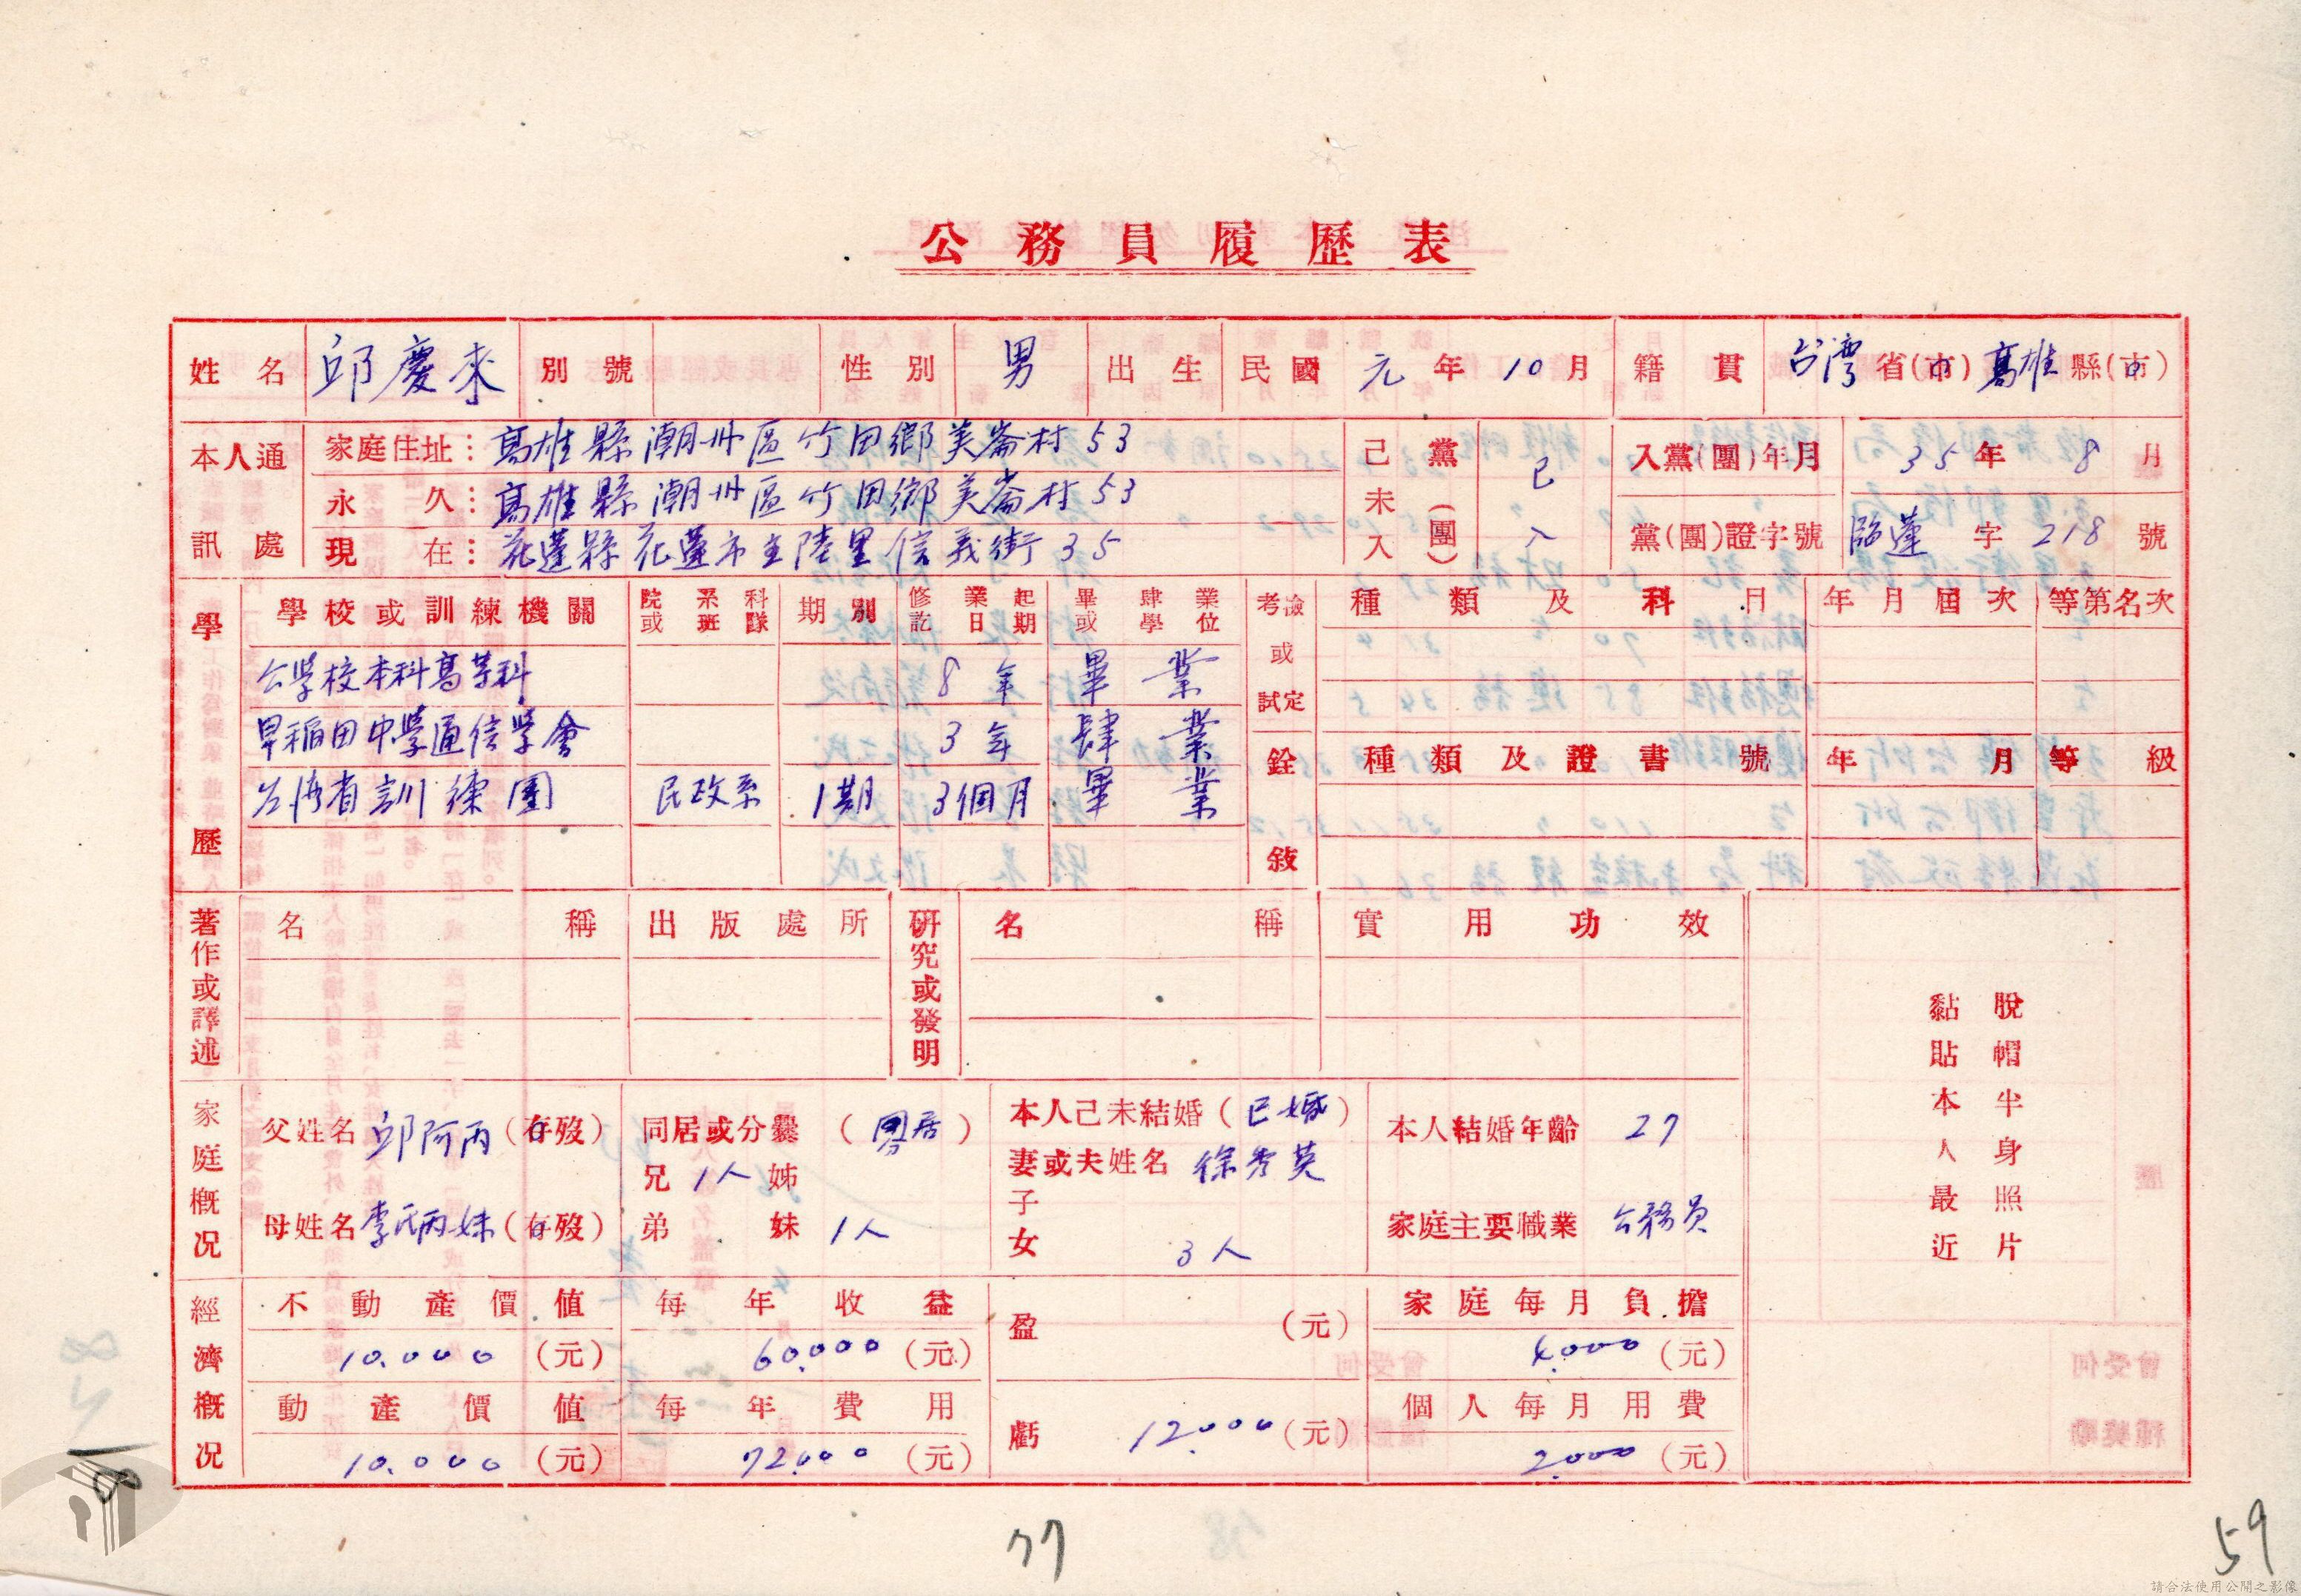 公務員履歷表
姓名 邱慶來 別號 性別 男 出生 民國 元年10月 籍貫 台湾省(市) 高雄縣(市)
本人通訊處
家庭住址：高雄縣潮州區竹田鄉美崙村53
永久：高雄縣潮州區竹田鄉美崙村53
現在：花蓮縣花蓮市主陸里信義街35
己未入黨(團) 已入
入黨(團)年月 35年8月
黨(團)證字號 臨蓮字218號
學歷
學校或訓練機關 院或系班科隊 期別 修業起訖日期 畢肆業或學位
公學校本科高等科 8年 畢業
早稲田中學通信學會 3年 肆業
台湾省訓練團 民政系 1期 3個月 畢業
考試或檢定 種類及科目 年月屆次 等第名次
銓敍 種類及證書號 年月 等級
著作或譯述 名稱 出版處所
研究或發明 名稱 實用功效
脫帽半身照片
黏貼本人最近
家庭概况
父姓名 邱阿丙 (存歿)
母姓名 李氏丙妹 (存歿)
同居或分爨 (同居)
兄 1人 姊
弟 妹 1人
本人己未結婚 (已婚)
妻或夫姓名 徐秀英
子女 3人
本人結婚年齡 27
家庭主要職業 公務員
經濟概况
不動產價值 10.000 (元)
動產價值 10.000 (元)
每年收益 60.000 (元)
每年費用 72.000 (元)
盈 (元)
虧 12.000 (元)
家庭每月負擔 6.000 (元)
個人每月用費 2.000 (元)
77
59
請合法使用公開之影像